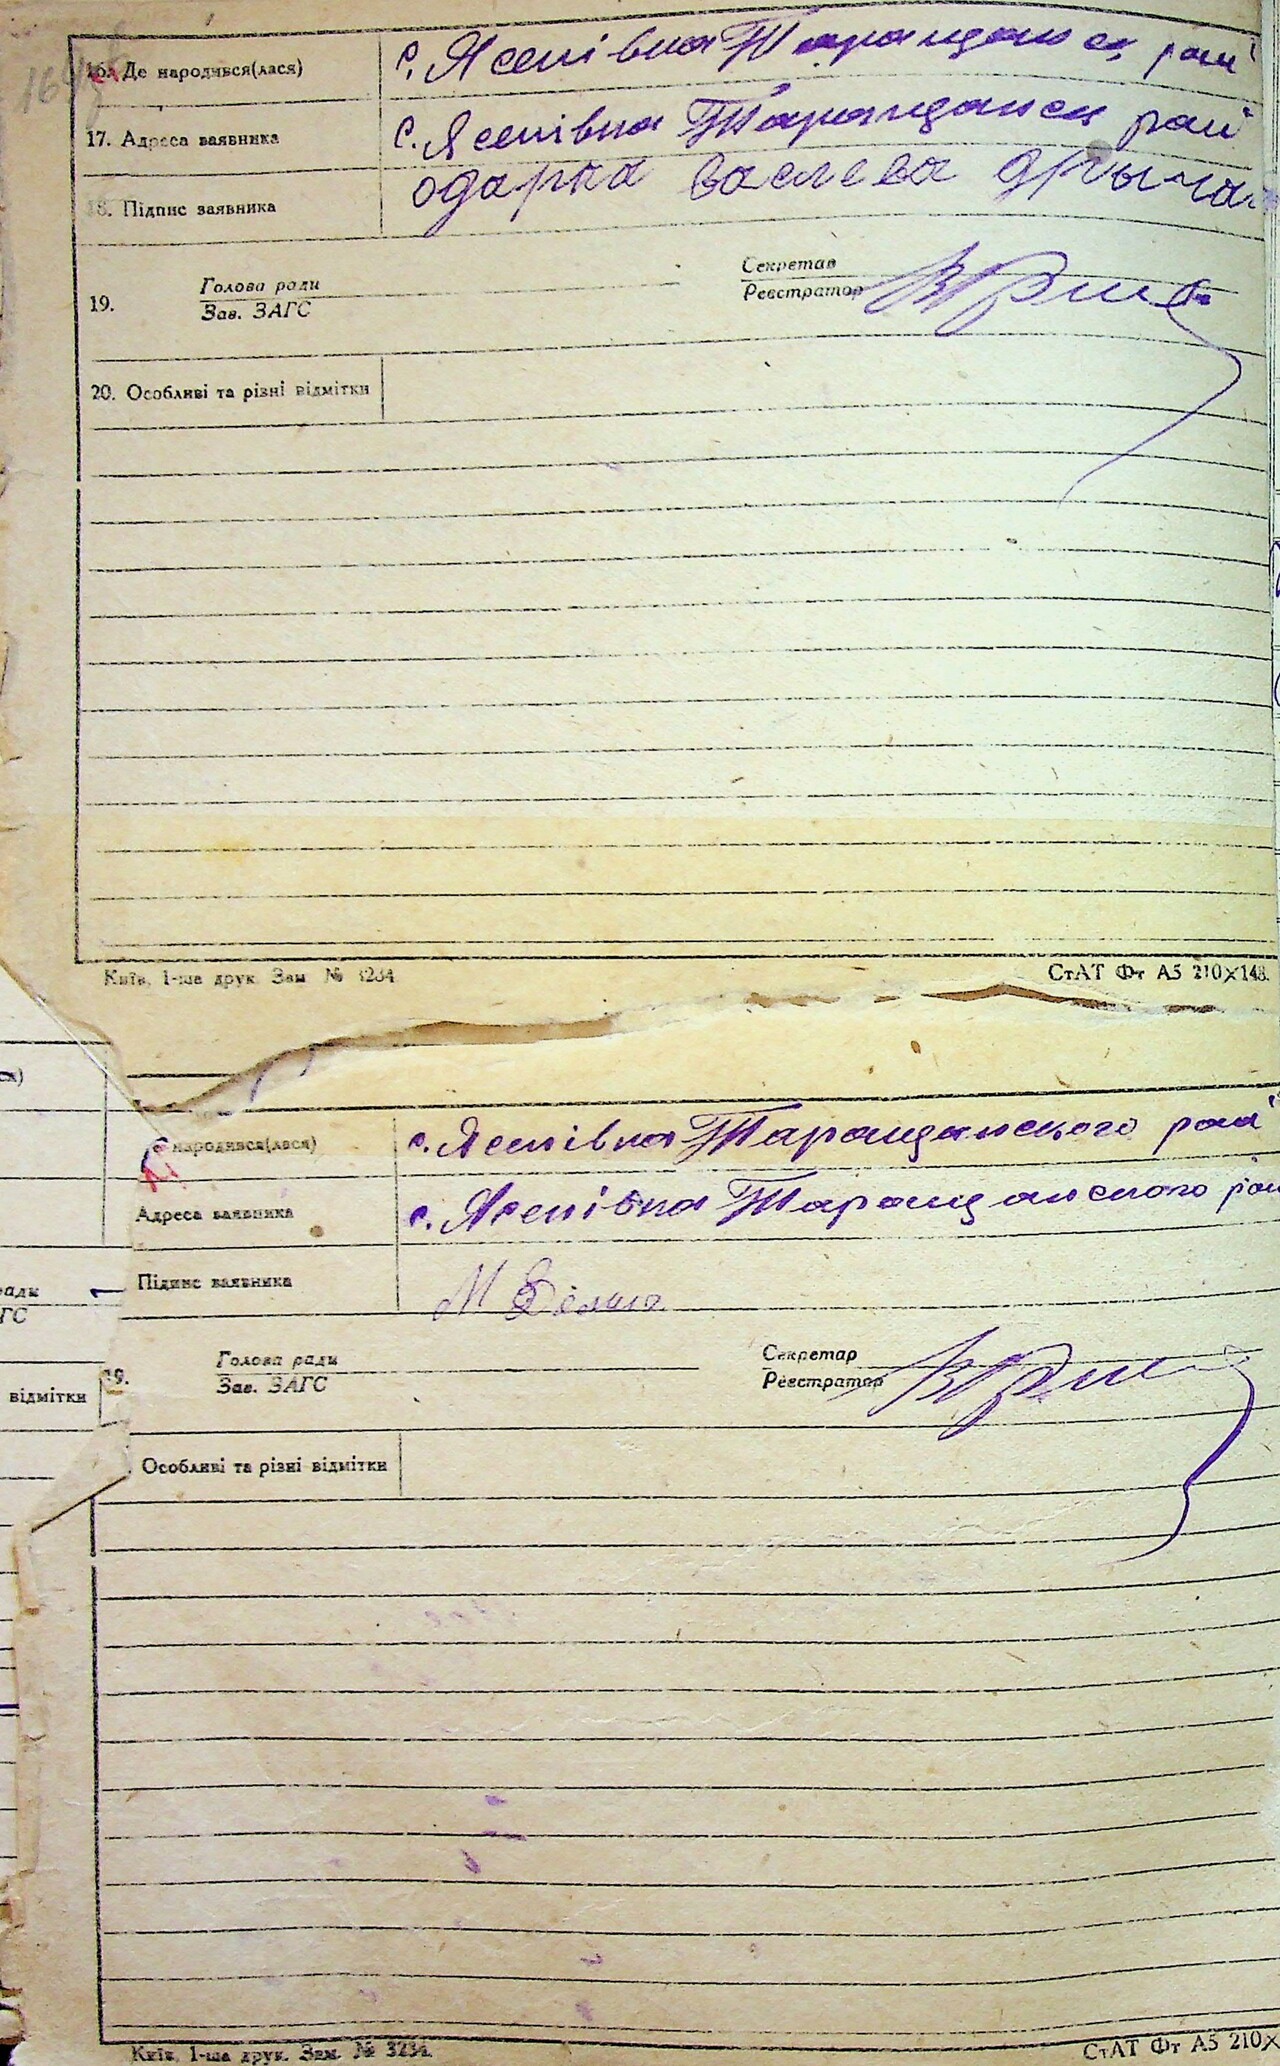 16. Де народився(лася) с. Ясенівка Таращанск рай
17. Адреса заявника с. Ясенівка Таращанск рай
18. Підпис заявника одарка васлева
19. Голова ради Секретар
Зав. ЗАГС Реєстратор
20. Особливі та різні відмітки
Київ, 1-ше друк. Зам. № 3234
СтАТ Фт А5 210×148.
народився(лася) с. Ясенівка Таращанского рай
Адреса заявника с. Ясенівка Таращанского рай
Підпис заявника М
19. Голова ради Секретар
Зав. ЗАГС Реєстратор
відмітки
Особливі та різні відмітки
Київ, 1-ша друк. Зам. № 3234.
СтАТ Фт А5 210×